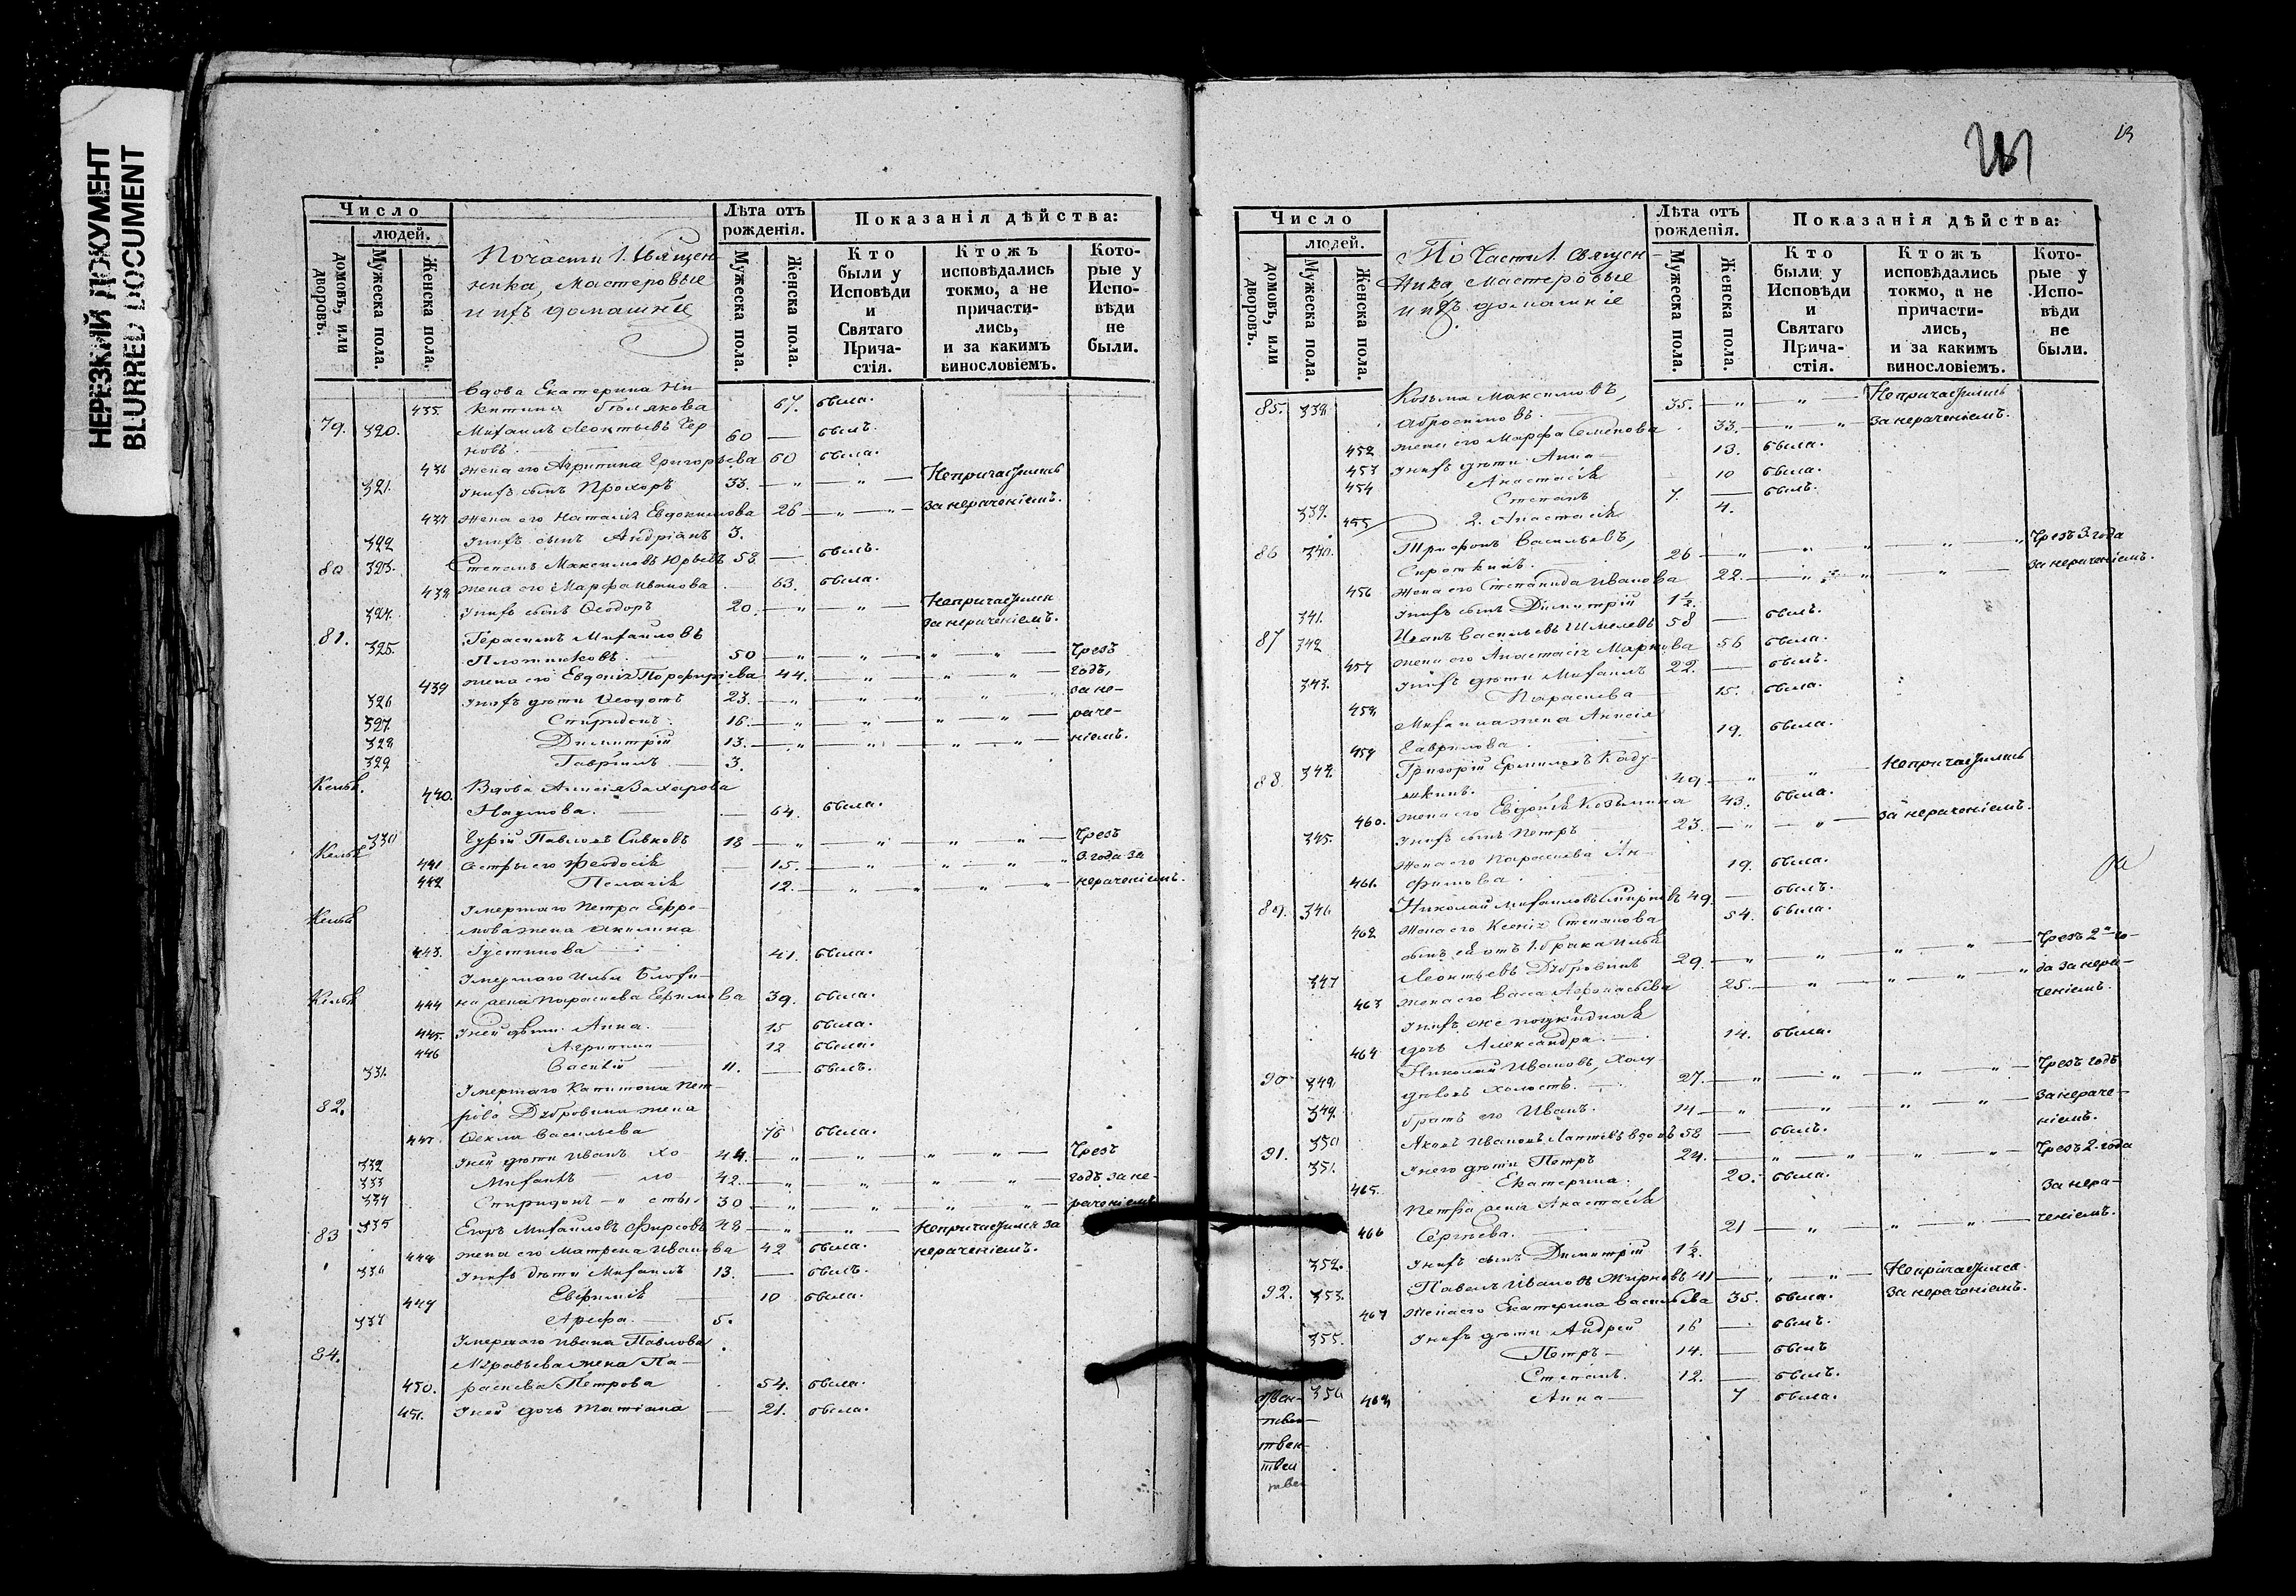 НЕРЕЗКИЙ ДОКУМЕНТ
BLURRED DOCUMENT
Число
людей.
домовъ, или дворовъ.
Мужеска пола.
Женска пола.
По части 1. Священ-
ника, Мастеровые
и ихъ домашніе
Лѣта отъ рожденія.
Мужеска пола.
Женска пола.
Показанія дѣйства:
Кто были у Исповѣди и Святаго Прича-стія.
Ктожъ исповѣдались токмо, а не причасти-лись, и за какимъ винословіемъ.
Кото-рые у Испо-вѣди не были.
Вдова Екатерина Ни-
435. китина 67. была.
79. 320. Михаилъ Леонтьевъ Чер
новъ. 60 — былъ.
436 жена его Агрипина Григорьева 60 была.
321. У нихъ сынъ Прохоръ 33. — „ — „ — Непричастились
437 жена его Наталія Евдокимова 26 — „ — „ — за нераченіемъ.
322 У нихъ сынъ Андріанъ 3.
80 323. Степанъ Максимовъ Юрьевъ 58. — былъ.
438 жена его Марфа Иванова 63. была.
324. У нихъ сынъ Ѳеодоръ 20. — „ — „ — Непричастился
за нераченіемъ.
81. 325. Герасимъ Михаиловъ
Плотниковъ. 50 — „ — „ — „ — „ — Чрезъ
439 жена его Евдокія Порфирьева 44. — „ — „ — „ — годъ,
326 У нихъ дѣти Ѳеодотъ 23. — „ — „ — „ — „ за не-
327. Спиридонъ. 16. — „ — „ — „ — „ — раче-
328 Димитрій 13. — „ — „ — „ — „ — ніемъ.
329 Гавріилъ. — 3.
Келья. 440. Вдова Анисія Захарова
Наумова. — 64. была.
Келья 330 Гурій Павловъ Сивковъ 18 — „ — „ — „ — „ — Чрезъ
441 Сестры его Феодосія 15. — „ — „ — „ — „ 3. года за
442 Пелагія 12. — „ — „ — „ — „ нераченіемъ.
Келья Умершаго Петра Ефре-
мова жена Акилина
443. Густинова 41. была.
Умершаго Ильи
Келья 444 на жена Параскева Ефимова 39. была.
445. У ней дѣти. Анна. 15 была.
446 Агрипина 12 была.
331. Василій 11. — былъ.
Умершаго Капитона Пет-
82. рова Дубровина жена
447. Ѳекла Васильева 76 была.
332 У ней дѣти Иванъ хо- 44. — „ — „ — „ — „ — Чрезъ
333 Михаилъ — ло- 42. — „ — „ — „ — „ — годъ за не-
334 Спиридонъ — „ сты. 30 — „ — „ — „ — „ — раченіемъ.
83 335 Егоръ Михаиловъ Фирсовъ 48 — „ — „ — Непричастился за
448 жена его Матрена Иванова 42 была. нераченіемъ.
336 У нихъ дѣти Михаилъ 13. — былъ.
449 Евфимія 10 была.
337 Арефа. 5.
84. Умершаго Ивана Павлова
Муравьева жена Па-
450. раскева Петрова 54. была.
451. У ней дочь Татіана — 21. была.
13
Число
людей.
домовъ, или дворовъ.
Мужеска пола.
Женска пола.
По Части 1. Священ-
ника, Мастеровые
и ихъ домашніе
Лѣта отъ рожденія.
Мужеска пола.
Женска пола.
Показанія дѣйства:
Кто были у Исповѣди и Святаго Прича-стія.
Ктожъ исповѣдались токмо, а не причасти-лись, и за какимъ винословіемъ.
Кото-рые у Испо-вѣди не были.
85. 338. Козьма Максимовъ,
Абросимовъ. 35. — „ — „ — Непричастились
452 жена его Марфа Семенова 33. — „ — „ за нераченіемъ.
453 У нихъ дѣти Анна 13. была.
454 Анастасія 10 была.
339. Степанъ 7. — былъ.
455 2. Анастасія 4.
86 340. Трифонъ Васильевъ,
Сироткинъ. 26 — „ — „ — „ — „ — „ Чрезъ 3 года
456 жена его Степанида Иванова 22. — „ — „ — „ — за нераченіемъ.
341. У нихъ сынъ Димитрій 1½.
87 342 Иванъ Васильевъ Шмелевъ 58 — былъ.
457 жена его Анастасія Маркова 56 была.
343. У нихъ дѣти Михаилъ 22. — былъ.
458 Параскева 15. была.
Михаила жена Анисія
459 Гаврилова. 19. была.
88. 344. Григорій Ермиловъ Каду-
шкинъ. 49. — „ — „ — Непричастились
460. жена его Евдокія Козьмина 43. была.
345. У нихъ сынъ Петръ 23. — „ — „ — за нераченіемъ.
жена его Параскева Ан-
461. фимова. 19. была.
89. 346 Николай Михаиловъ Смирновъ 49. — былъ.
462 жена его Ксенія Степанова 54. была.
сынъ ей отъ 1. брака Илья
347 Леонтьевъ Дубровинъ 29. — „ — „ — „ — „ — Чрезъ 2 го-
463 жена его Васса Афонасьева 25. — „ — „ — „ — „ да за нера-
У нихъ же подкидная ченіемъ.
464 дочь Александра. 14. была.
90 348 Николай Ивановъ, Холу-
доковъ холостъ. 27. — „ — „ — „ — „ — Чрезъ годъ
349. братъ его Иванъ. 14 — „ — „ — „ — „ — за нераче-
ніемъ.
91. 350 Яковъ Ивановъ Лаптевъ вдовъ 58 — былъ.
351. У него дѣти Петръ 24. — „ — „ — „ — „ — Чрезъ 2. года
465. Екатерина. 20. была. за нера-
Петра жена Анастасія
466 Сергѣева. 21 — „ — „ — „ — ченіемъ.
352. У нихъ сынъ Димитрій 1½.
92. 353. Павелъ Ивановъ Жирновъ 41 — „ — „ — Непричастился
467 жена его Екатерина Васильева 35. была. за нераченіемъ.
355. У нихъ дѣти Андрей 16 — былъ.
Петръ 14. — былъ
356 Степанъ. 12. — былъ.
468 Анна 7 была.
твен
твен